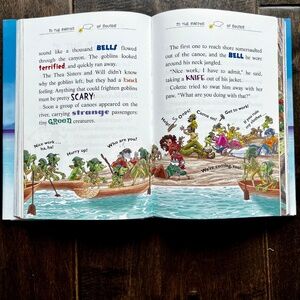 sound like a thousand BELLS flowed
through the canyon. The goblins looked
terrified, and quickly ran away.
The Thea Sisters and Will didn't know
why the goblins left, but they had a bad
feeling. Anything that could frighten goblins
must be pretty SCARY!
Soon a group of canoes appeared on the
river, carrying strange passengers:
tiny green creatures.
Nice work . . .
ha, ha!
Hurry up!
Who are you?
The first one to reach shore somersaulted
out of the canoe, and the BELL he wore
around his neck jangled.
"Nice work, I have to admit," he said,
taking a KNIFE out of his jacket.
Colette tried to swat him away with her
paw. "What are you doing with that?"
Come on!
Get to work!
We're coming, too!